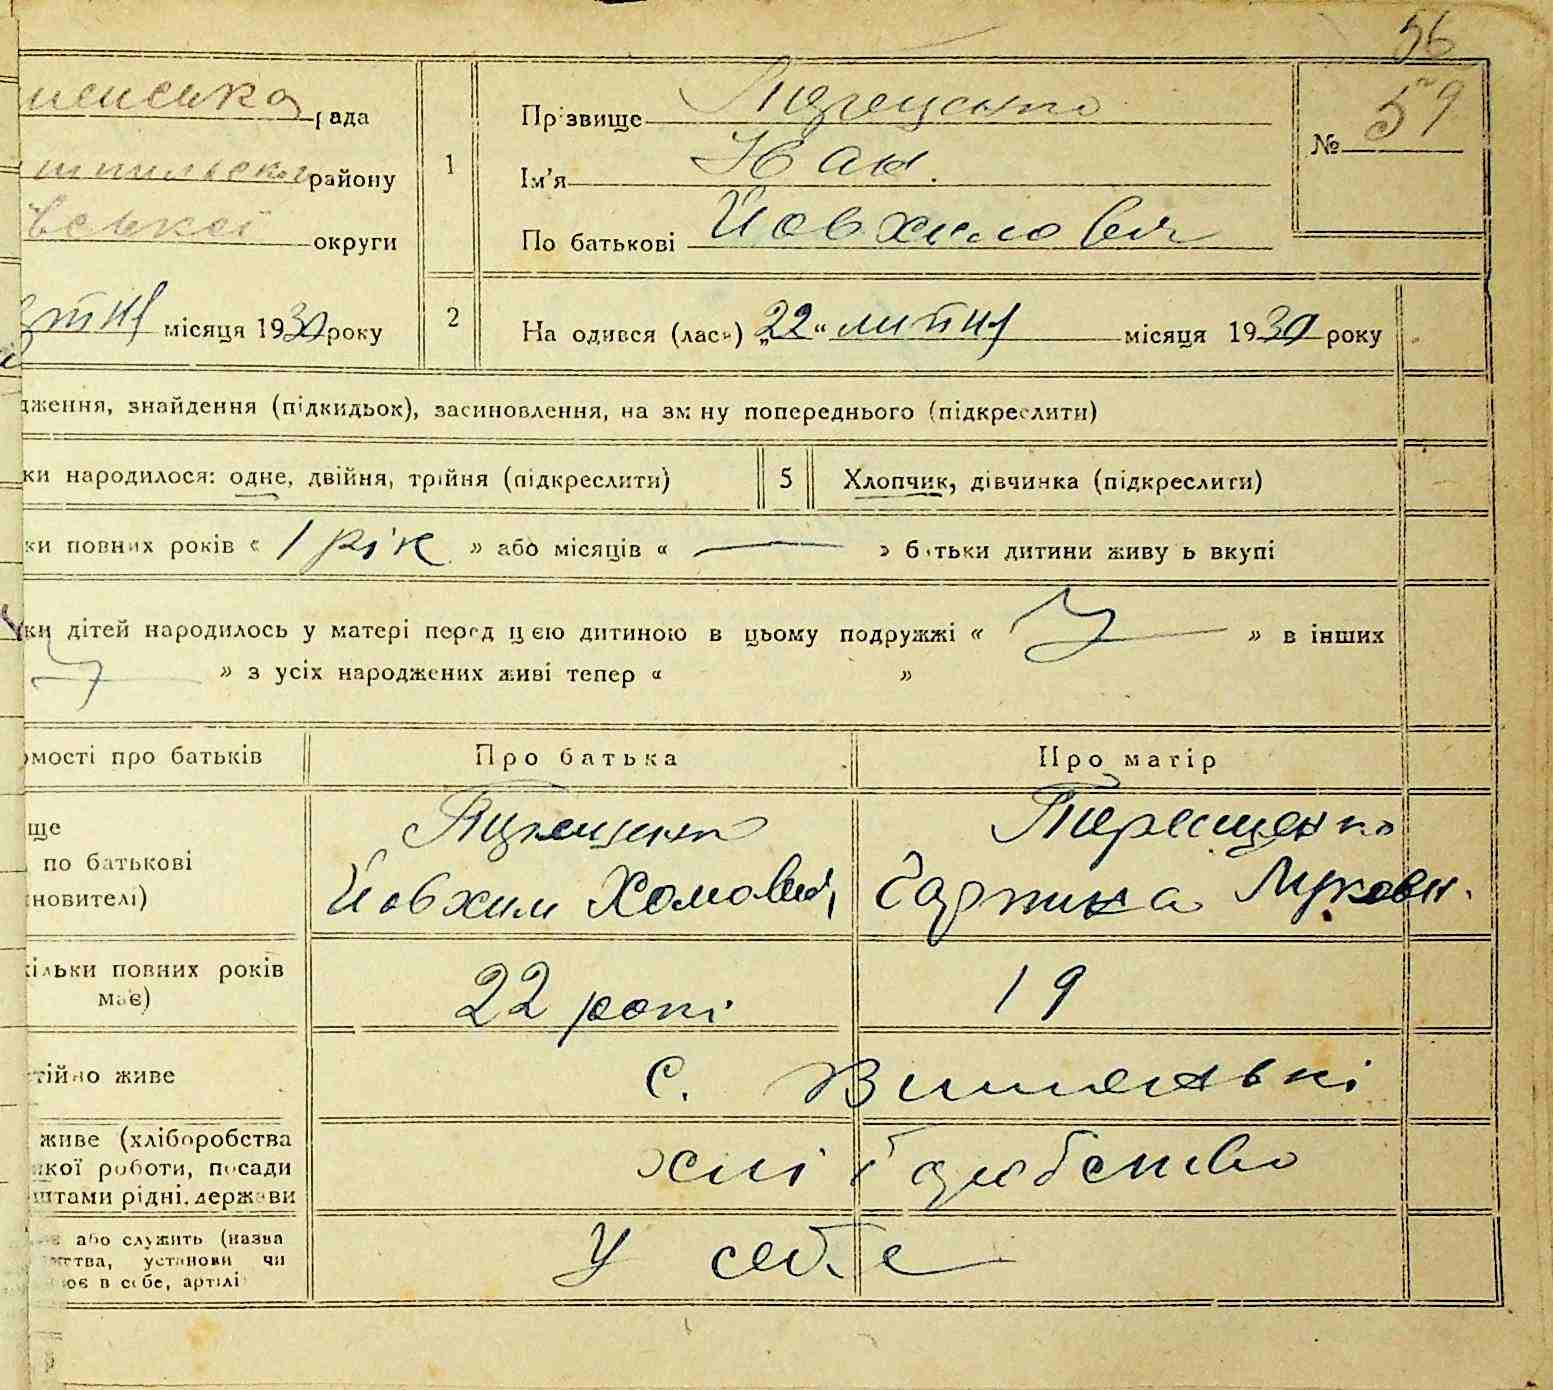 56
рада
району
округи
1
Прізвище
Ім'я Іван.
По батькові Йовхимович
№ 59
місяця 1930 року
2
На одився (лась) „22“ липня місяця 1930 року
дження, знайдення (підкидьок), засиновлення, на зм ну попереднього (підкреслити)
ки народилося: одне, двійня, трійня (підкреслити)
5
Хлопчик, дівчинка (підкреслити)
ки повних років « 1 рік » або місяців « — » б тьки дитини живу ь вкупі
ки дітей народилось у матері перед цією дитиною в цьому подружжі « » в інших
» з усіх народжених живі тепер « »
омості про батьків
Про батька
Про матір
ще
по батькові
новителі)
Йовхим Хомович
Терещенко
Луков.
кільки повних років
має)
22 рокі
19
тійно живе
с. Вишеньки
живе (хліборобства
якої роботи, посади
штами рідні, держави
хліборобство
або служить (назва
мства, установи чи
ює в себе, артілі
У себе